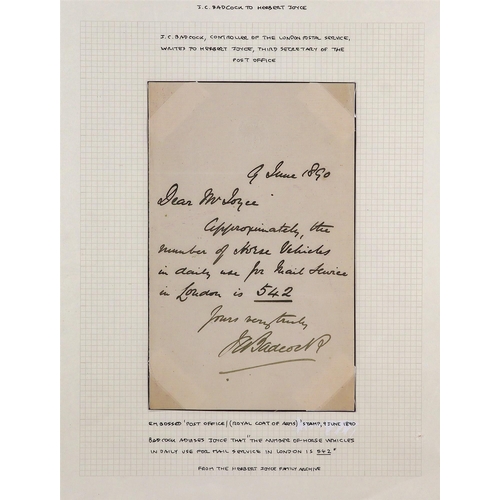 J.C. BADCOCK TO HERBERT JOYCE
J.C. BADCOCK, CONTROLLER OF THE LONDON POSTAL SERVICE,
WRITES TO HERBERT JOYCE, THIRD SECRETARY OF THE
POST OFFICE
9 June 1890
Dear Mr Joyce
Approximately, the
number of Horse Vehicles
in daily use for Mail Service
in London is 542
Yours very truly
JCBadcock
EMBOSSED 'POST OFFICE/(ROYAL COAT OF ARMS)' STAMP, 9 JUNE 1890
BADCOCK ADVISES JOYCE THAT "THE NUMBER OF HORSE VEHICLES
IN DAILY USE FOR MAIL SERVICE IN LONDON IS 542"
FROM THE HERBERT JOYCE FAMILY ARCHIVE